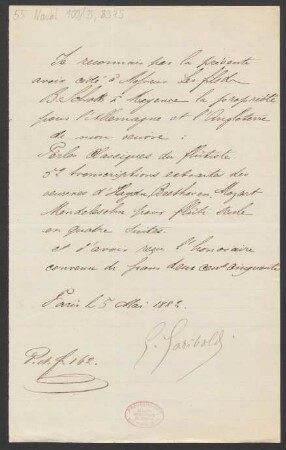 55 Nachl 100/B, 2373
Je reconnais par la présente
avoir cédé à Messieurs Les fils de
B. Schott à Mayence la propriété
pour l'allemagne et l'Angleterre
de mon œuvre :
Perles Classiques du flûtiste
transcriptions extraites des
œuvres d'Haydn Beethoven, Mozart
Mendelssohn pour flûte seule
en quatre Suites.
et d'avoir reçu l'honoraire
convenu de francs deux cent cinquante
Paris le 5 Mai 1882.
G. Gariboldi